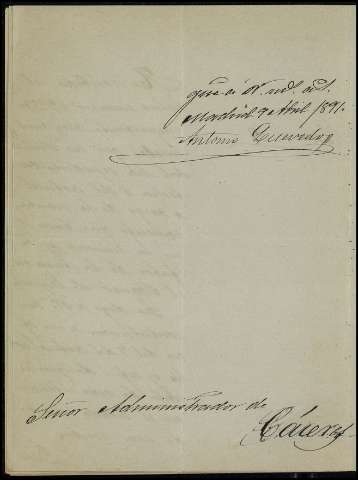 que á V. 
Madrid 9 Abril 1891.
Antonio Quevedo
Señor Administrador de
Cáceres